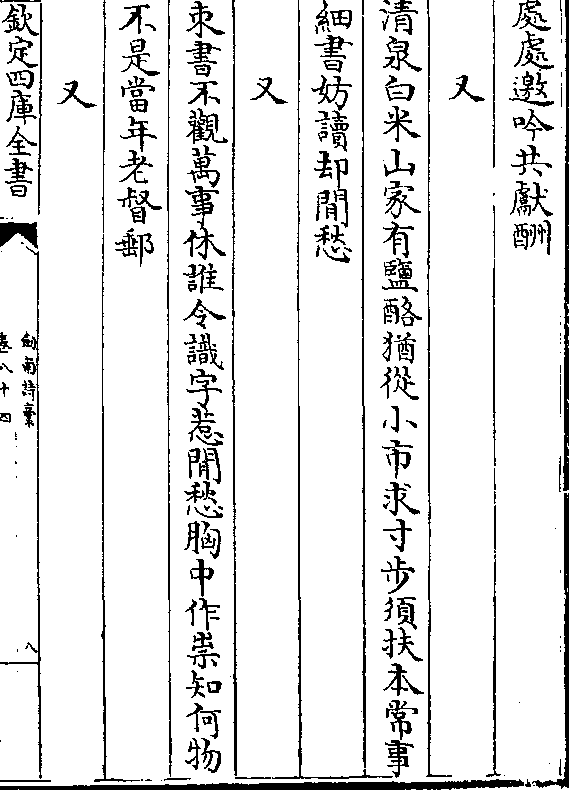 處處邀吟共獻酬
又
清泉白米山家有鹽酪猶從小市求寸步須扶本常事
細書妨讀却閒愁
又
束書不觀萬事休誰令識字惹閒愁胸中作祟知何物
不是當年老督郵
又
欽定四庫全書
劍南詩藁
卷八十四
八